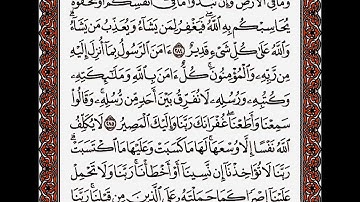 وَمَا فِي الْأَرْضِ وَإِن تُبْدُوا مَا فِي أَنفُسِكُمْ أَوْ تُخْفُوهُ
يُحَاسِبْكُم بِهِ اللَّهُ فَيَغْفِرُ لِمَن يَشَاءُ وَيُعَذِّبُ مَن يَشَاءُ
وَاللَّهُ عَلَىٰ كُلِّ شَيْءٍ قَدِيرٌ ٢٨٤ ءَامَنَ الرَّسُولُ بِمَا أُنزِلَ إِلَيْهِ
مِن رَّبِّهِ وَالْمُؤْمِنُونَ كُلٌّ ءَامَنَ بِاللَّهِ وَمَلَائِكَتِهِ
وَكُتُبِهِ وَرُسُلِهِ لَا نُفَرِّقُ بَيْنَ أَحَدٍ مِّن رُّسُلِهِ وَقَالُوا
سَمِعْنَا وَأَطَعْنَا غُفْرَانَكَ رَبَّنَا وَإِلَيْكَ الْمَصِيرُ ٢٨٥ لَا يُكَلِّفُ
اللَّهُ نَفْسًا إِلَّا وُسْعَهَا لَهَا مَا كَسَبَتْ وَعَلَيْهَا مَا اكْتَسَبَتْ
رَبَّنَا لَا تُؤَاخِذْنَا إِن نَّسِينَا أَوْ أَخْطَأْنَا رَبَّنَا وَلَا تَحْمِلْ
عَلَيْنَا إِصْرًا كَمَا حَمَلْتَهُ عَلَى الَّذِينَ مِن قَبْلِنَا رَبَّنَا